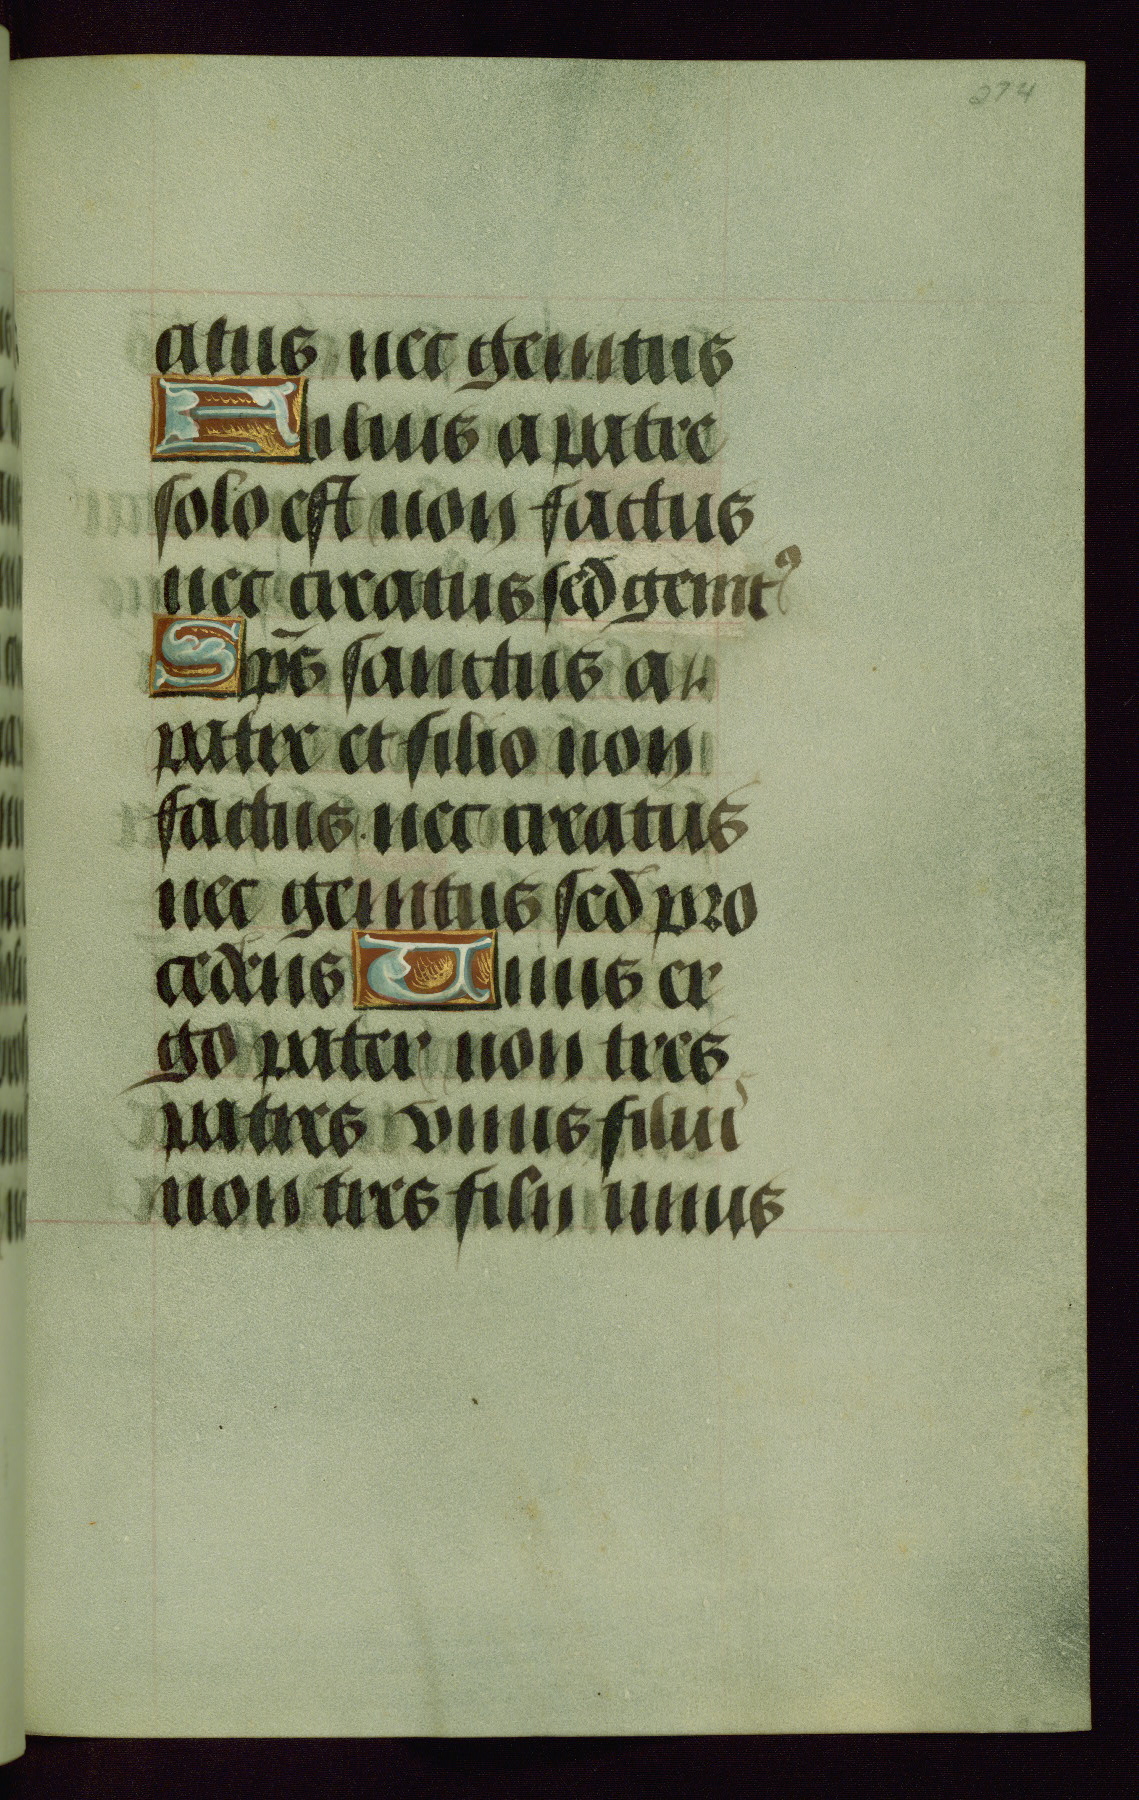 274
atus nec genitus
Filius a patre
solo est non factus
nec creatus sed genitꝰ
Sp̄s sanctus a
patre et filio non
factus nec creatus
nec genitus sed pro
cedens Unus er
go pater non tres
patres vnus filiu᾽
non tres filij unus